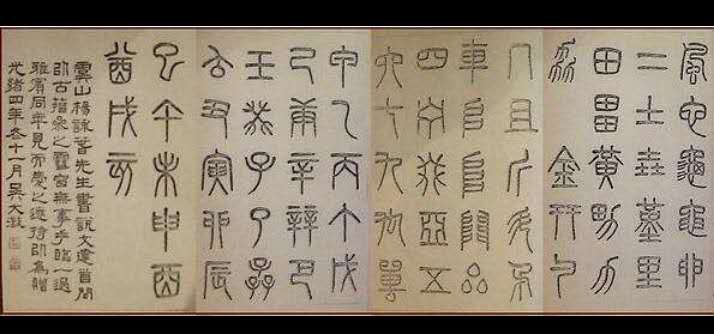 風它龜黽卵
二土垚堇里
田畕黃男力
劦金幵勺
几且斤斗矛
車𠂤𨸏𨺅厽
四宁叕亞五
六七九禸嘼
甲乙丙丁戊
己庚辛辡巴
壬癸子了孨
𠫓丑寅卯辰
巳午未申酉
酋戌亥
山楊詠春先生書說文建首間
以古籀參之無事手臨一過
雅賓同年見而愛之遂持以為贈
光緒四年冬十一月吳大澂